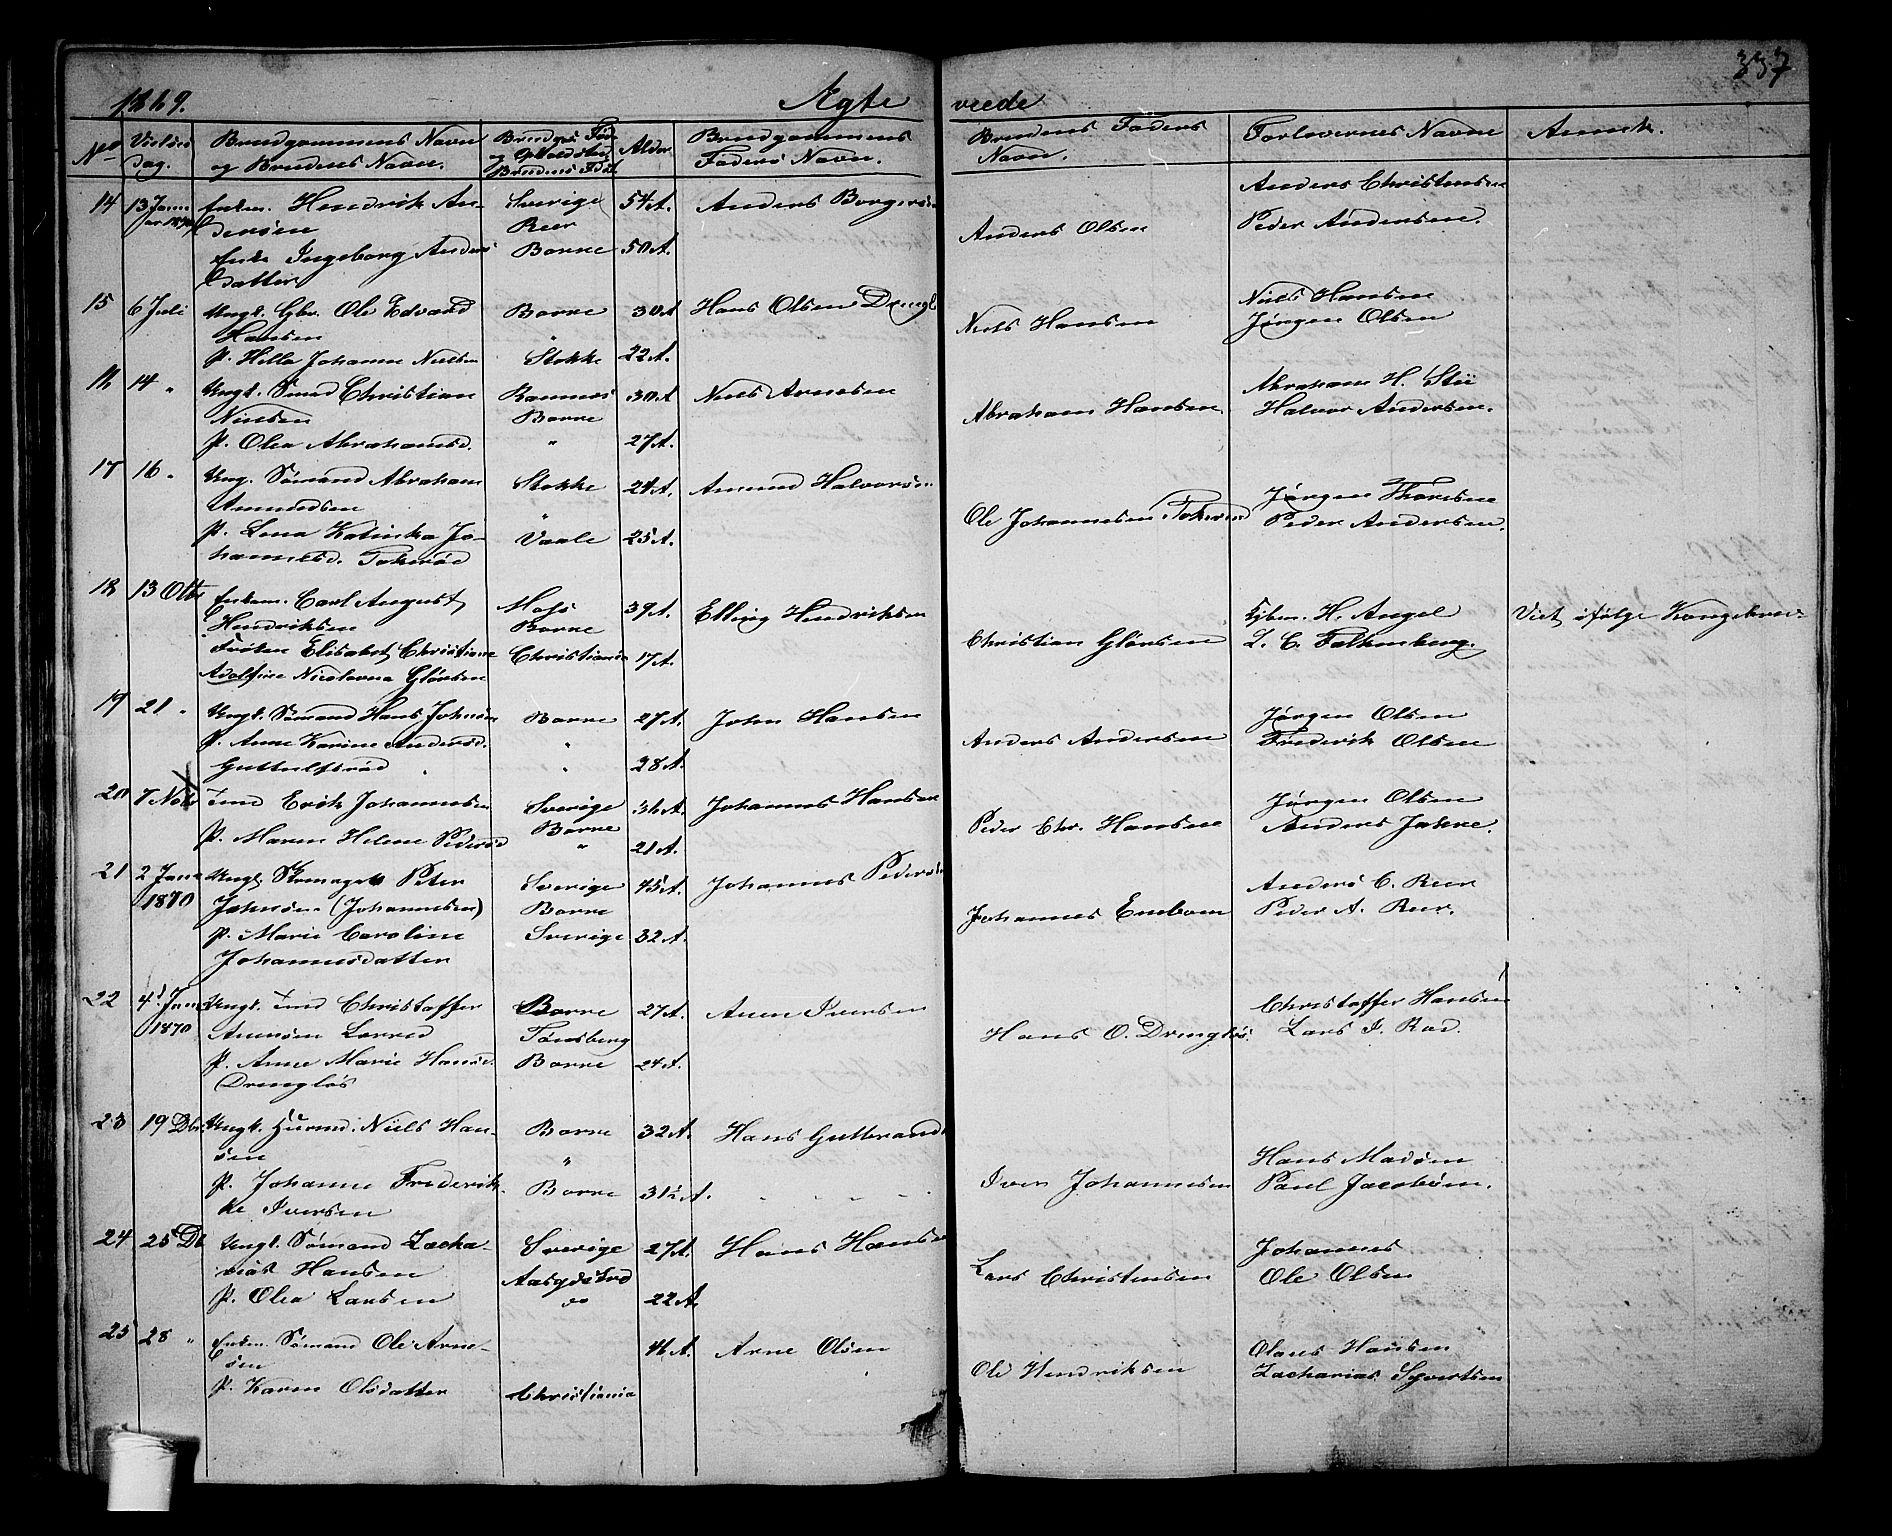 337
1869. Ægte viede
No Vielses Dag. Brudgommens Navn og Brudens Navn. Alder Brudgommens Faders Navn. Brudens Faders Navn. Forlovernes Navne Anmk.
14 13 Janu Enkem. Hendrik An- Sverige 54 A. Anders Borgersen Anders Olsen Anders Christensen
ar 1870 dersen Reer Peder Andersen.
Enke Ingeborg Anders Borre 50 A.
datter
15 6 Juli Ungk. Gbr. Ole Edvard Borre 30 A Hans Olsen Drengl Niels Hansen Niels Hansen
Hansen " Jørgen Olsen
P. Helle Johanne Nielsen Stokke 22 A.
16 14 " Ungk. Smed Christian Ramnes 30 A Niels Arnesen Abraham Hansen Abraham H. Stii
Nielsen Borre Halvor Andersen.
P. Olea Abrahamsd. " 27 A.
17 16 " Ung. Sømand Abraham Stokke 24 A. Amund Halvorsen Ole Johannesen Tokerød Jørgen Thoresen
Amundsen " Peder Andersen.
P. Lena Katinka Jo- Vaale 25 A.
hannesd. Tokerød
18 13 Otb Enkem. Carl August Moss 39 A. Elling Hendriksen Christian Glørsen Kjbm. H. Angel Viet ifølge Kongebrev
Hendriksen Borre L. C. Falkenberg.
Frøken Elisabet Christiane Christiania 17 A.
Adolfine Nicolovna Glørsen
19 21 " Ungk. Sømand Hans Johnsen Borre 27 A. John Hansen Anders Andersen Jørgen Olsen
P. Anne Karine Andersd. " Frederik Olsen
Guttulfsrød " 28 A.
20 7 Nov Erik Johannesen Sverige 36 A. Johannes Hansen Peder Chr. Hansen Jørgen Olsen
Borre Anders Jahre.
P. Maren Helene Pedersd " 21 A.
21 2 Janr Ungk. Skomager Peter Sverige 45 A. Johannes Pedersen Johannes Enebom Anders C. Reer
1870 Johnsen (Johannesen) Borre Peder A. Reer.
P. Marie Caroline Sverige 32 A.
Johannesdatter
22 4d Jan. Ungk. Christoffer Borre 27 A. Aren Iversen Hans O. Drengløs. Christoffer Hansen
1870 Arensen Lerred Tønsberg Lars I. Rød.
P. Anne Marie Hansd. Borre 24 A.
Drengløs
23 19 Dbr Ungk. Huusmd. Niels Han- Borre 32 A. Hans Gulbrand Iver Johannesen Hans Madsen
sen " Paul Jacobsen.
P. Johanne Frederik- Borre 31½ A. " " " "
ke Iversen
24 25 Db Ungk. Sømand Zacha- Sverige 27 A. Hans Hansen Lars Christensen Johannes
rias Hansen Aasgdstrd Ole Olsen
P. Olea Larsen do 22 A.
25 28 " Enkm. Sømand Ole Arne- 46 A. Arne Olsen Ole Hendriksen Olaus Hansen
sen Zacharias Syvertsen
P. Karen Olsdatter Christiania